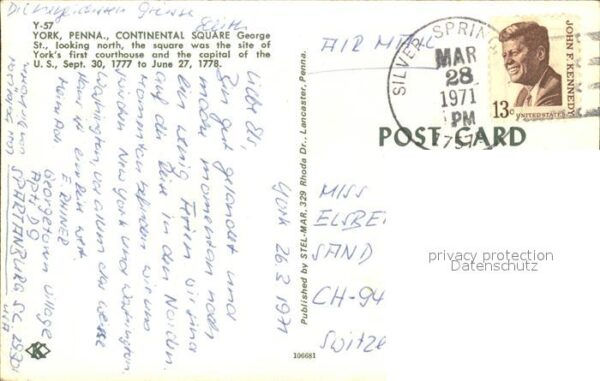 Die herzlichsten Grüsse
Edith
Y-57
YORK, PENNA., CONTINENTAL SQUARE George
St., looking north, the square was the site of
York's first courthouse and the capital of the
U. S., Sept. 30, 1777 to June 27, 1778.
York 26 3 1971
Liebe
Bin gut gelandet und
mache momentan noch
ein wenig Ferien. Wir sind
auf der Reise in den Norden.
Momentan befinden wir uns
zwischen New York und Washington.
Washington, vor allem das weisse
Haus ist eine Reise wert.
E. RHINER
Georgetown Village
Apt D 9
SPARTANBURG SC 29301
USA
Published by STEL-MAR, 329 Rhoda Dr., Lancaster, Penna.
106681
K
AIR MAIL
SILVER SPRING
MAR
28
1971
PM
JOHN F. KENNEDY
13c
UNITED STATES
POST CARD
MISS
ELSBE
SAND
CH-94
Switze
privacy protection
Datenschutz